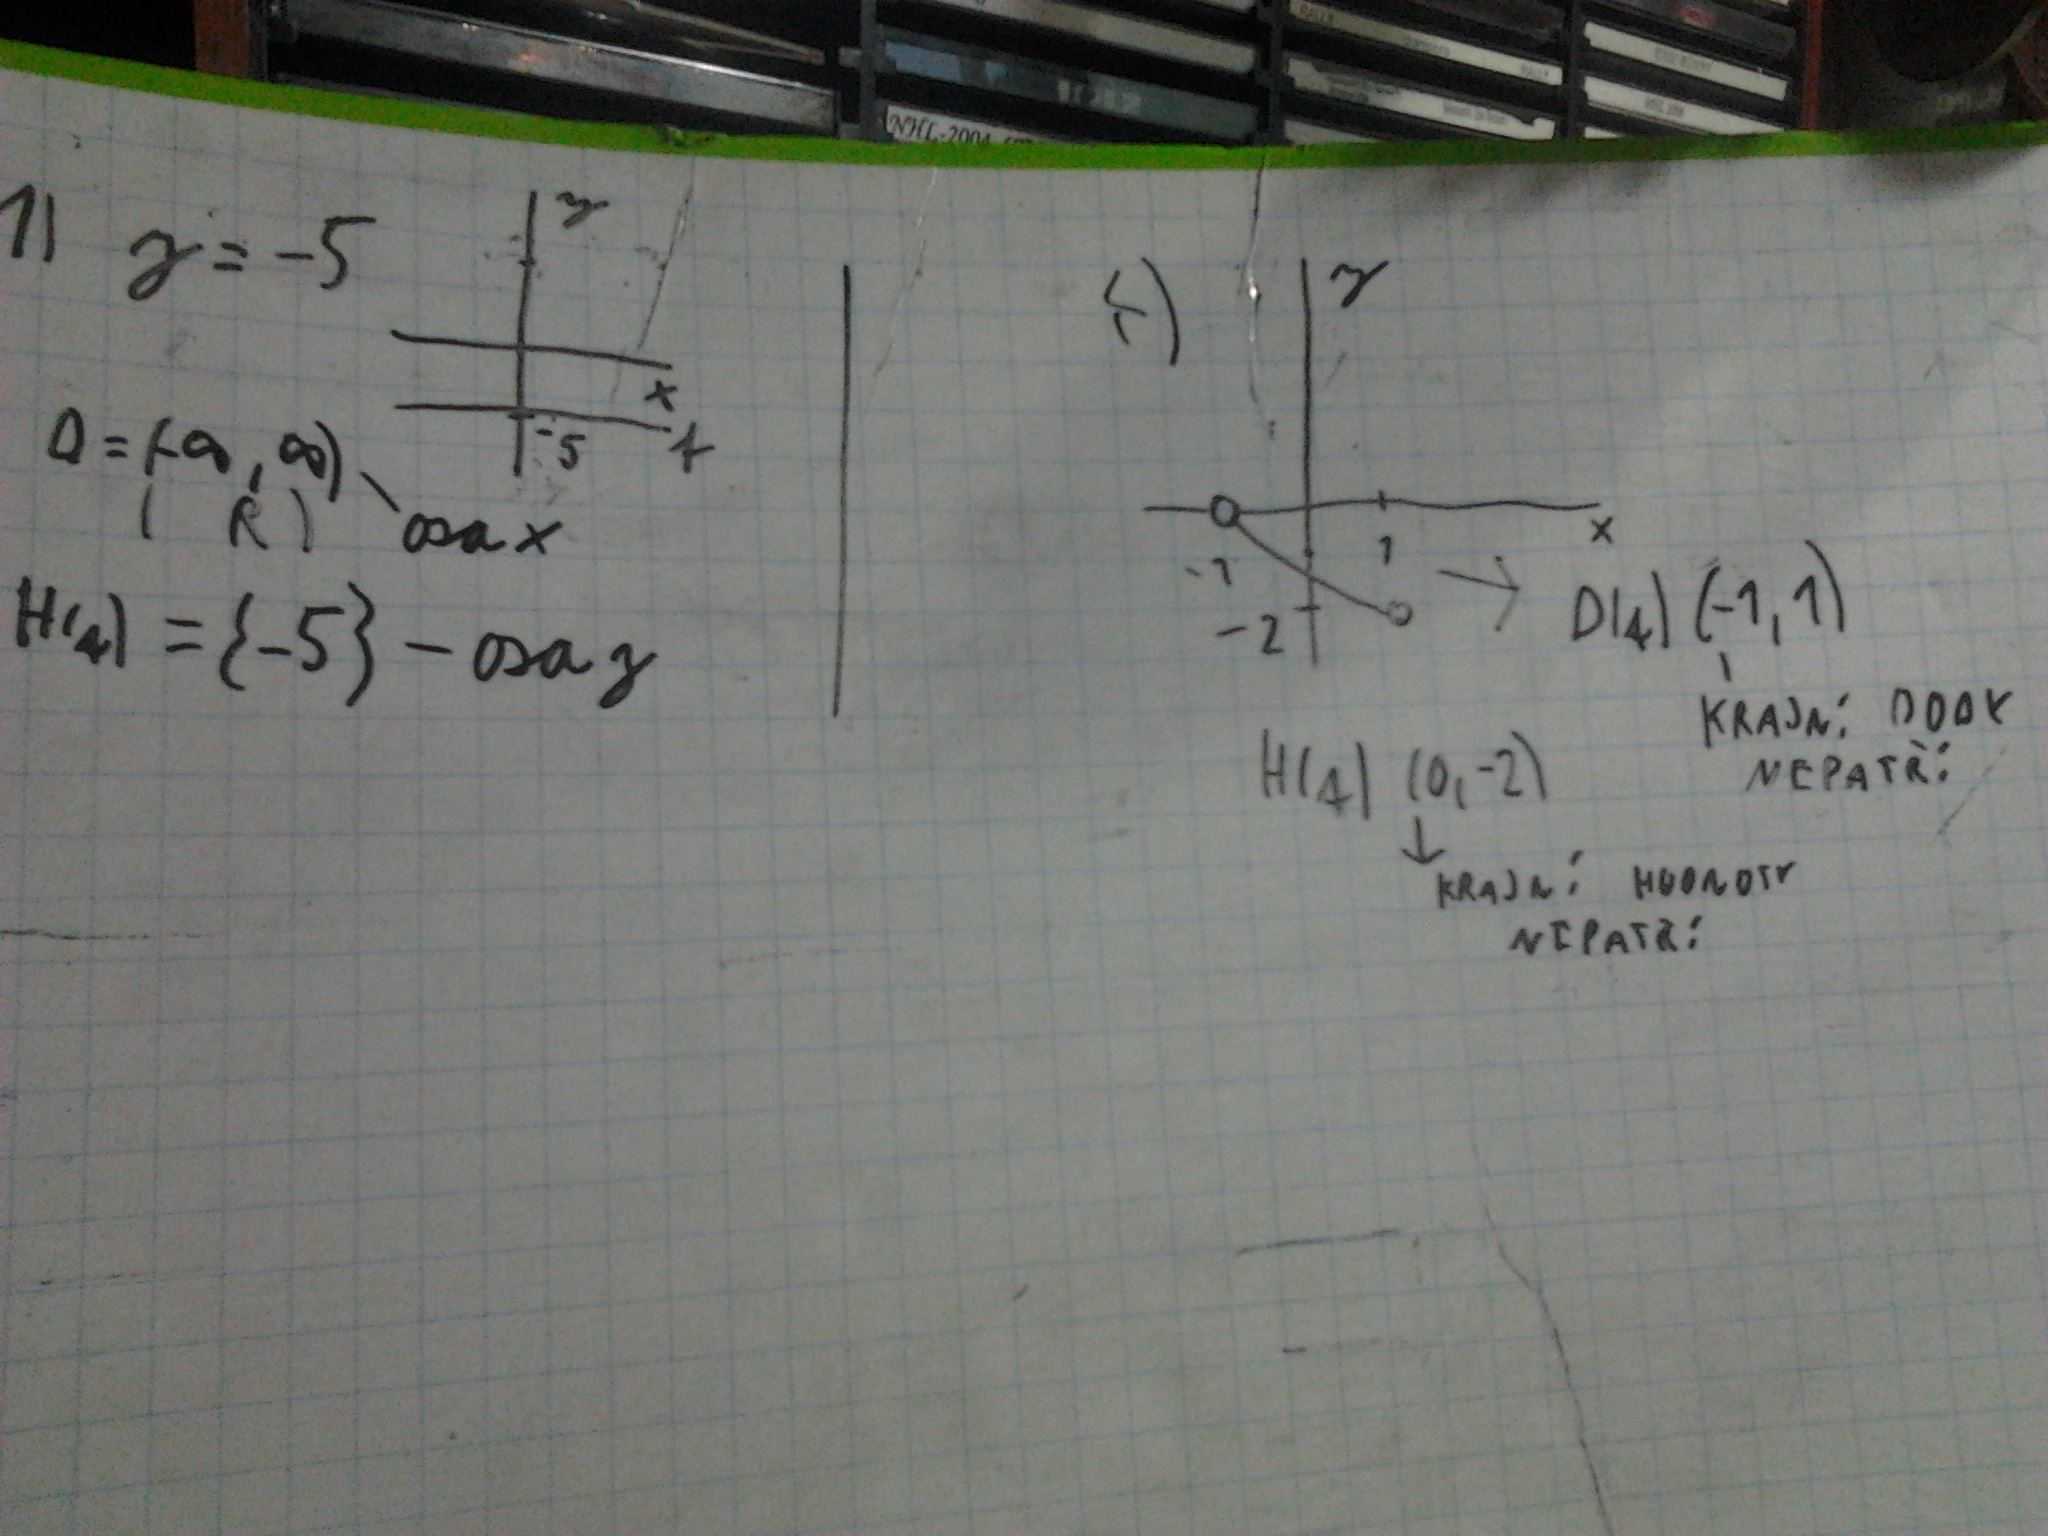 NHL-2004
1) y = -5
y
x
-5
f
D = (-∞, ∞)
( R )
osa x
H(f) = {-5} - osa y
f)
y
x
-1
1
-2
D(f) (-1, 1)
KRAJNÍ BODY
NEPATŘÍ
H(f) (0, -2)
KRAJNÍ HODNOTY
NEPATŘÍ